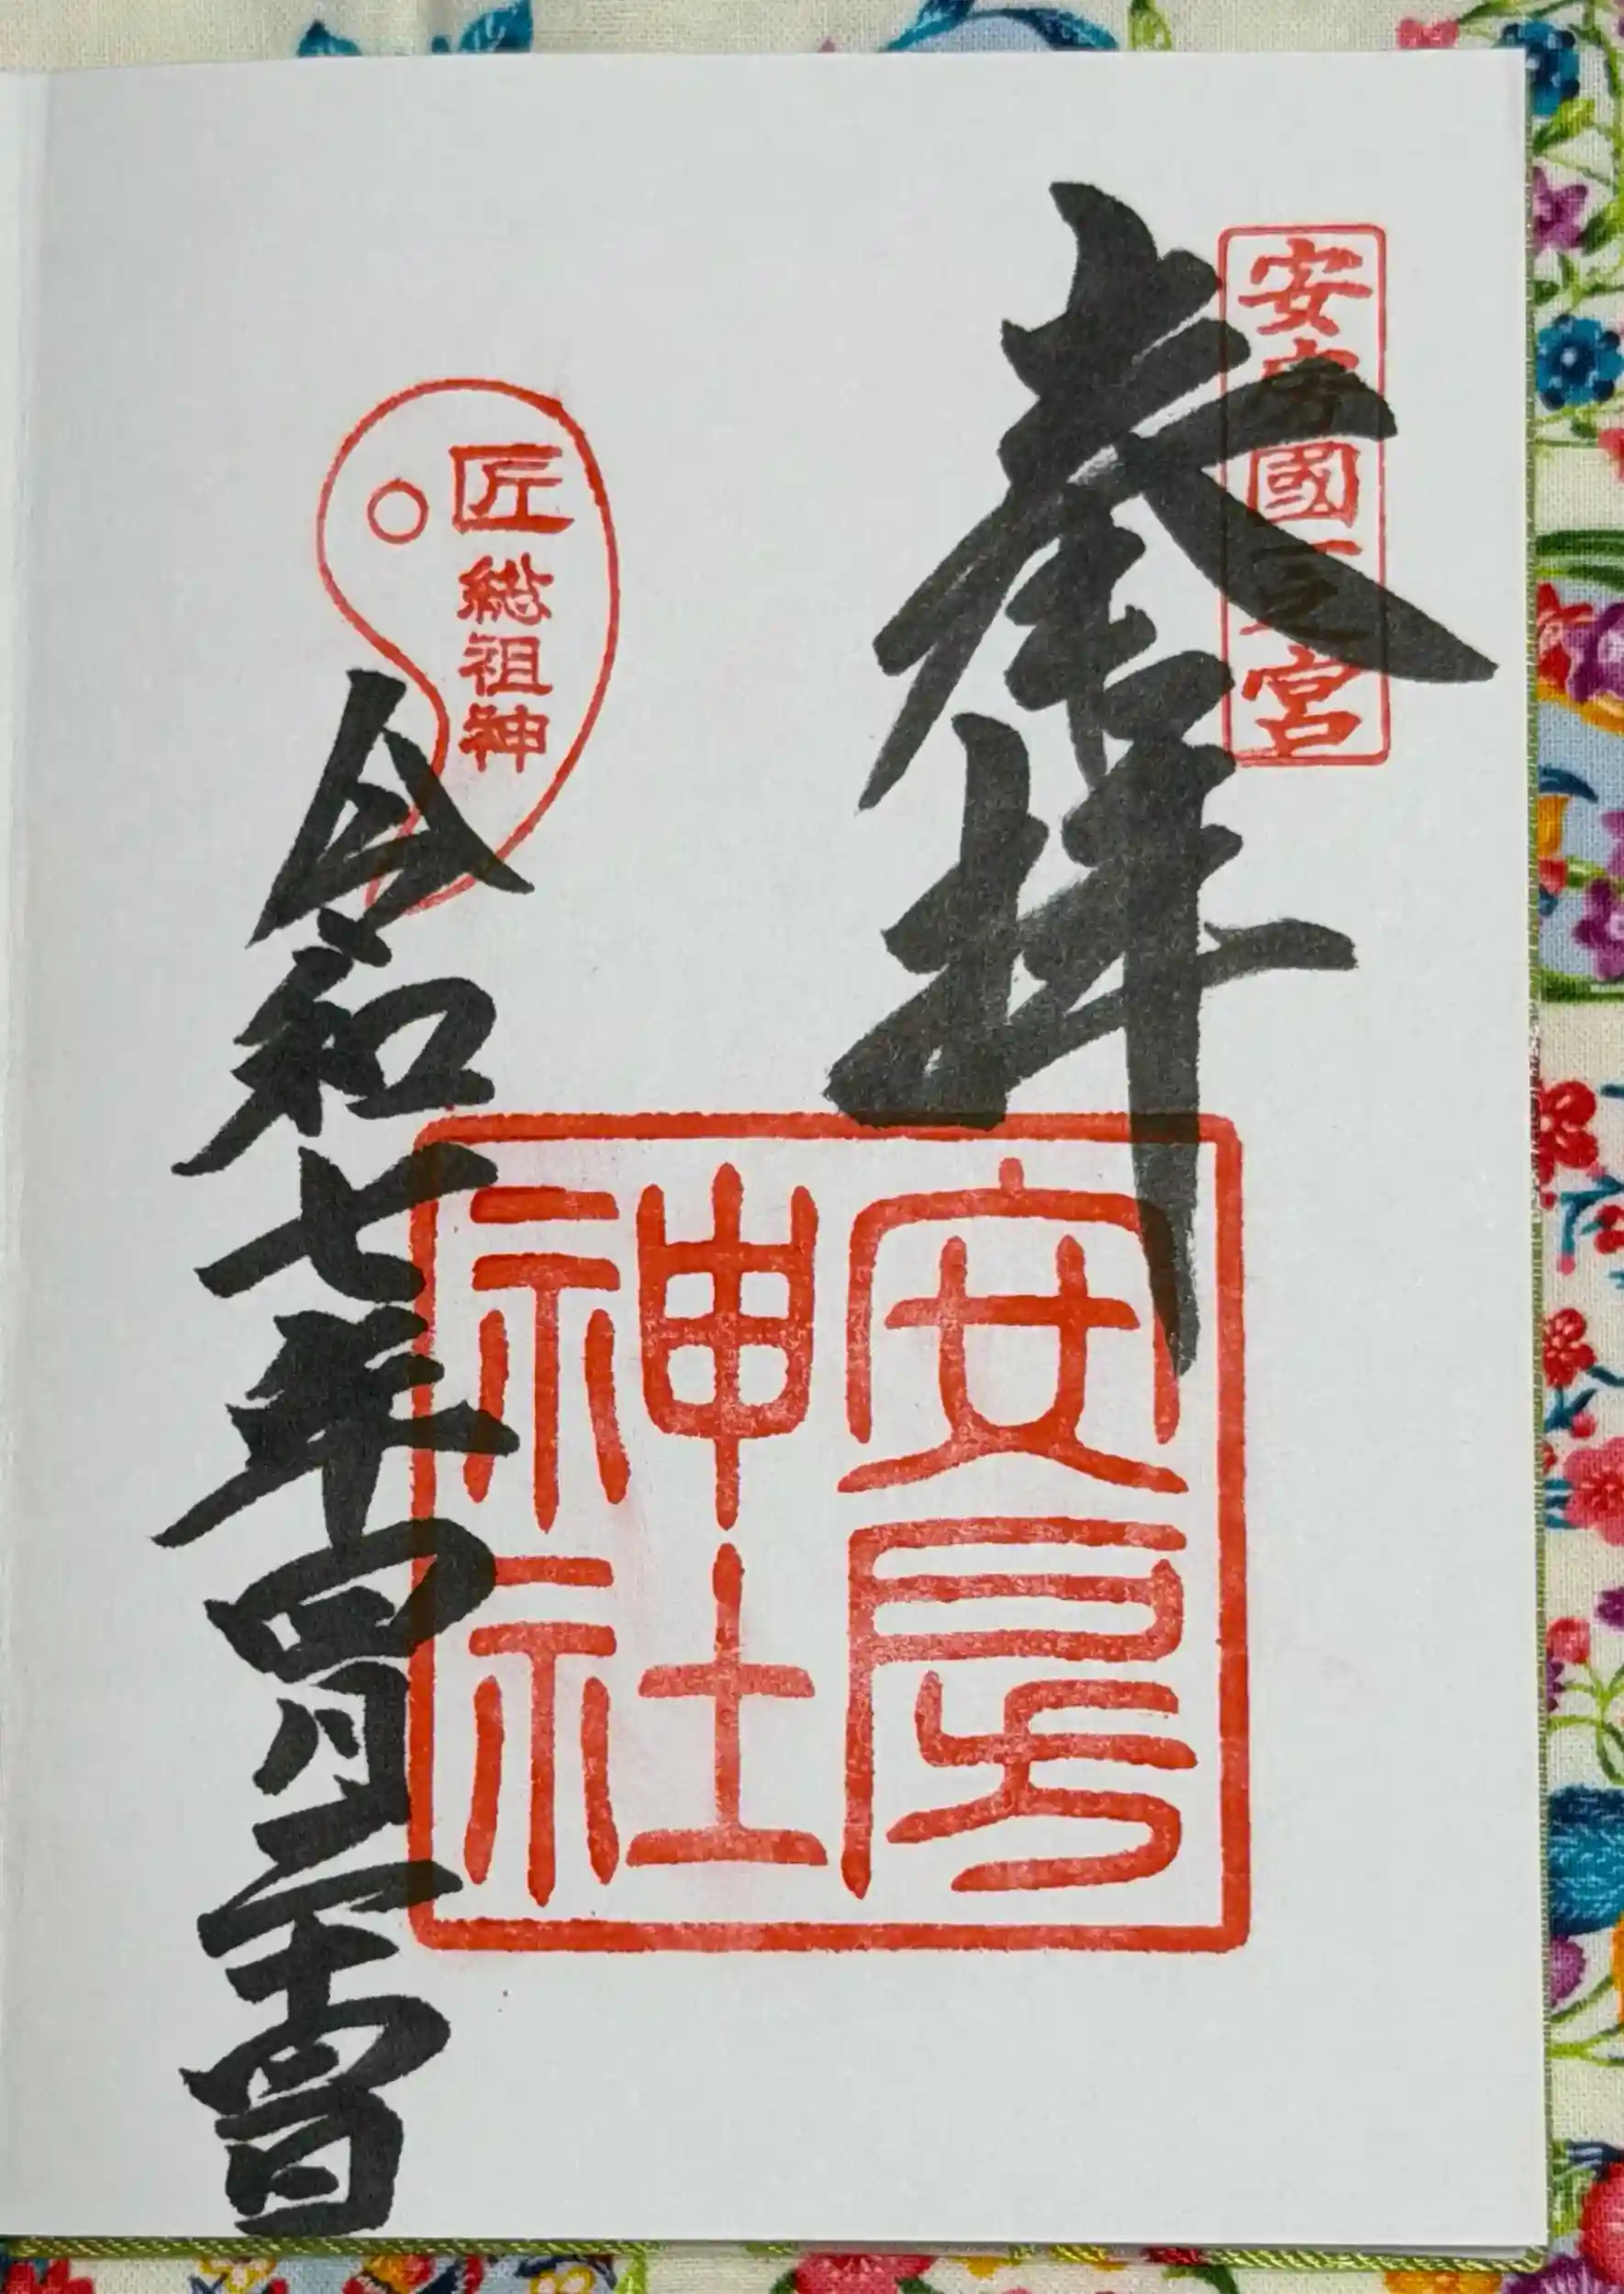 安房國一之宮
奉拝
安房
神社
匠総祖神
令和七年四月二十四日